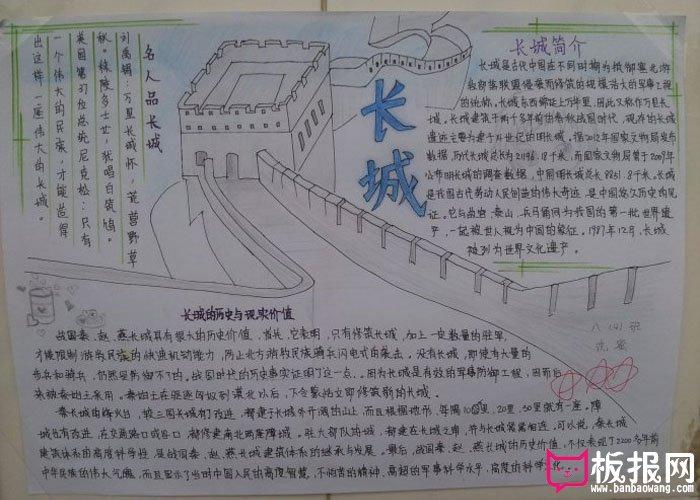 名人品长城
刘禹锡：万里长城怀，荒营野草
秋。秣陵多士女，犹唱白符鸠。
美国第37位总统尼克松：只有
一个伟大的民族，才能造得
出这样一座伟大的长城。
长城
长城简介
长城是古代中国在不同时期为抵御塞北游
牧部落联盟侵袭而修筑的规模浩大的军事工程
的统称。长城东西绵延上万华里，因此又称作万里长
城。长城建筑于两千多年前的春秋战国时代，现存的长城
遗迹主要为建于14世纪的明长城。据2012年国家文物局发布
数据，历代长城总长为21196.18千米，而国家文物局曾于2009年
公布明长城的调查数据，中国明长城总长8851.8千米。长城
是我国古代劳动人民创造的伟大奇迹，是中国悠久历史的见
证。它与故宫、泰山、兵马俑同为我国的第一批世界遗
产，一起被世人视为中国的象征。1987年12月，长城
被列为世界文化遗产。
长城的历史与现实价值
战国秦、赵、燕长城具有很大的历史价值，首先，它表明，只有修筑长城，加上一定数量的驻军，
才能限制游牧民族的快速机动能力，阻止北方游牧民族骑兵闪电式的袭击。没有长城，即使有大量的
步兵和骑兵，仍然是防御不了的。战国时代的历史事实证明了这一点。因为长城是有效的军事防御工程，因而后
来被秦始皇采用。秦始皇在驱逐匈奴到漠北以后，下令蒙恬立即修筑新的长城。
秦长城的烽火台，较三国长城有改进，都建于长城外开阔的山上，而且根据地形，每隔10里，20里，30里就有一座。障
城也有改进，在交通路口或谷口，都修建南北两座障城。驻大部队的城，都建在长城之南，并与长城紧紧相连。可以说，秦长城
建筑体系的高度科学性，是战国秦、赵、燕长城建筑体系的继承与发展。最后，战国秦、赵、燕长城的历史价值，不仅表现了2200多年前
中华民族的伟大气魄，而且显示了当时中国人民的高度智慧、不怕苦的精神、高超的军事科学水平、高度的科学文化...
八（4）班
板报网
www.banbaowang.com